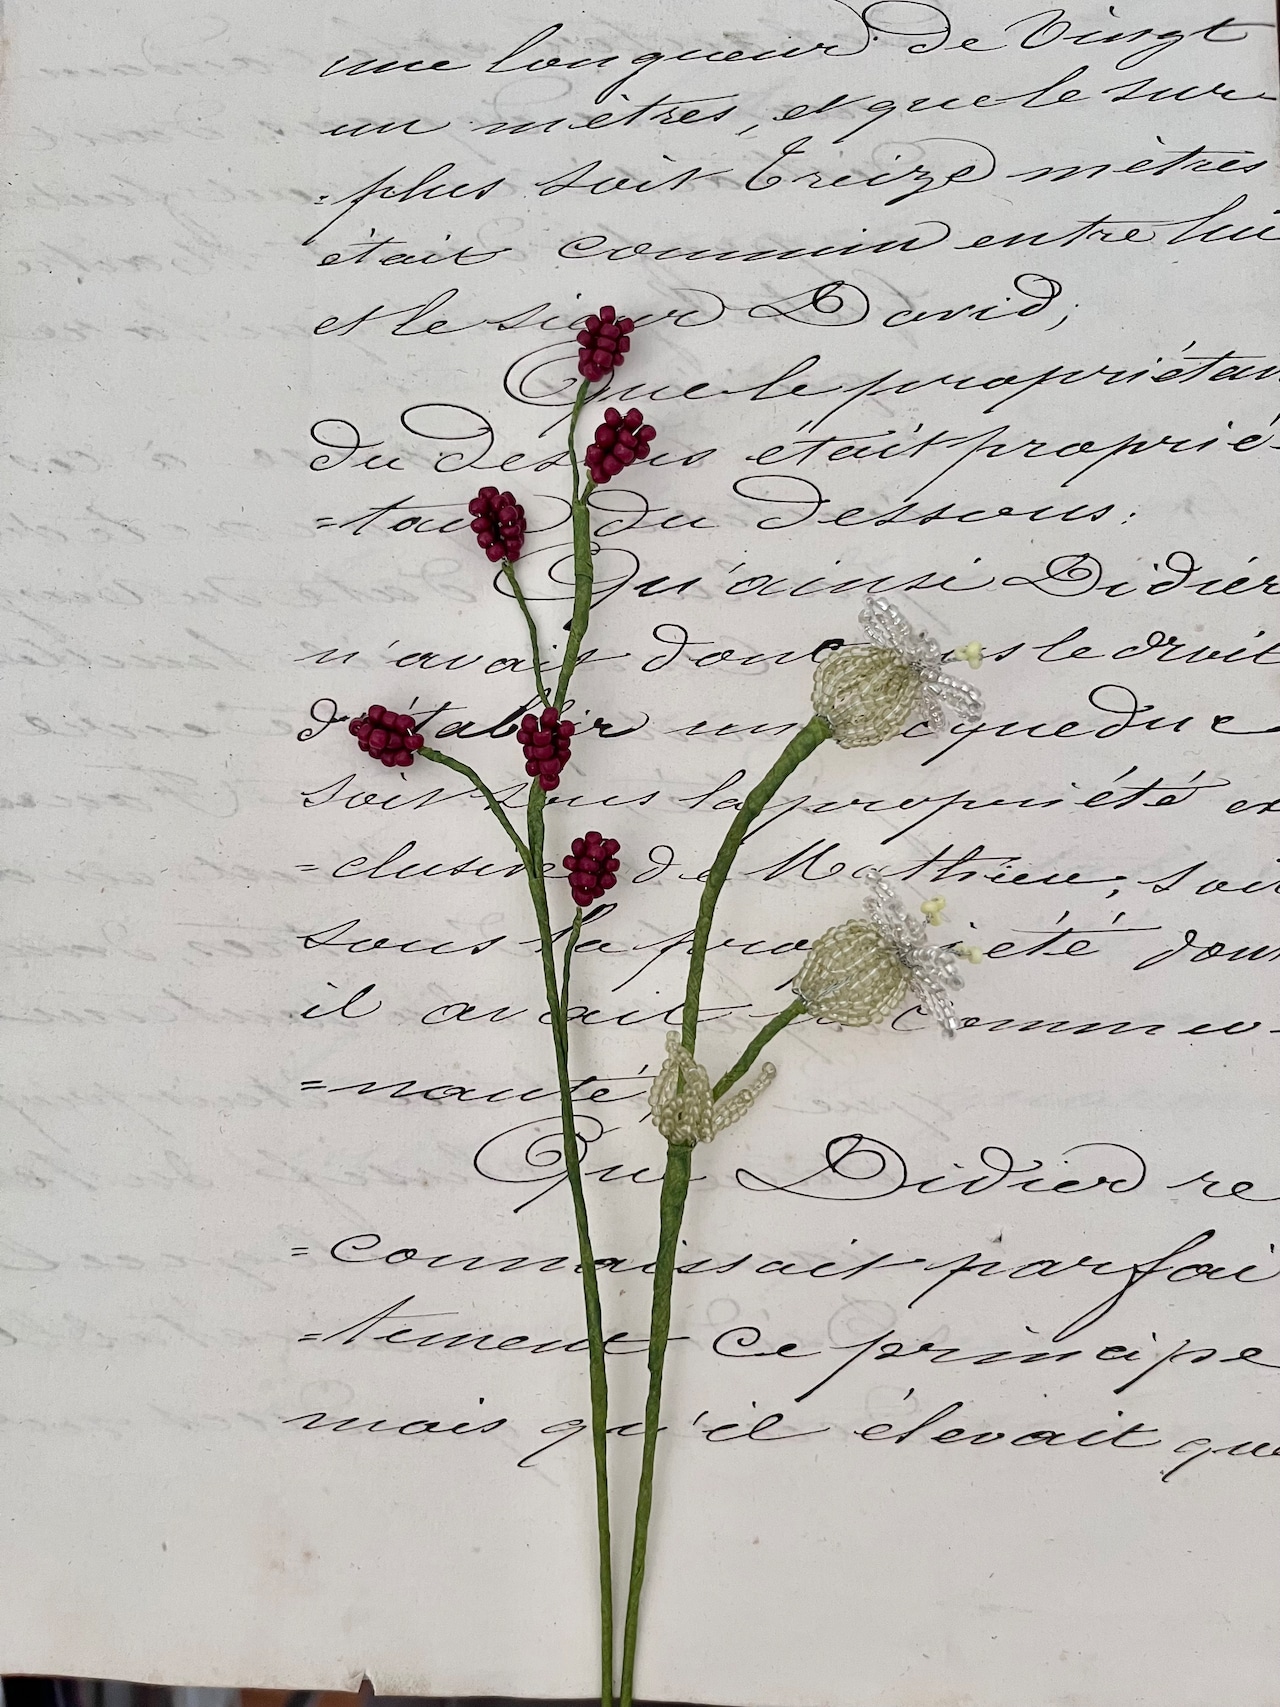 une longueur de Vingt
un mètres, et que le sur
-plus soit Treize mètres
était commun entre lui
et le sieur David;
Que le propriétai
du dessus était proprié-
=taire du dessous:
Qu'ainsi Didier
n'avait donc pas le droit
d'établir un aqueduc
soit sous la propriété ex
=clusive de Mathieu, soit
sous la propriété dont
il avait la commu-
=nauté;
Que Didier re
=connaissait parfai
=tement ce principe
mais qu'il élevait que